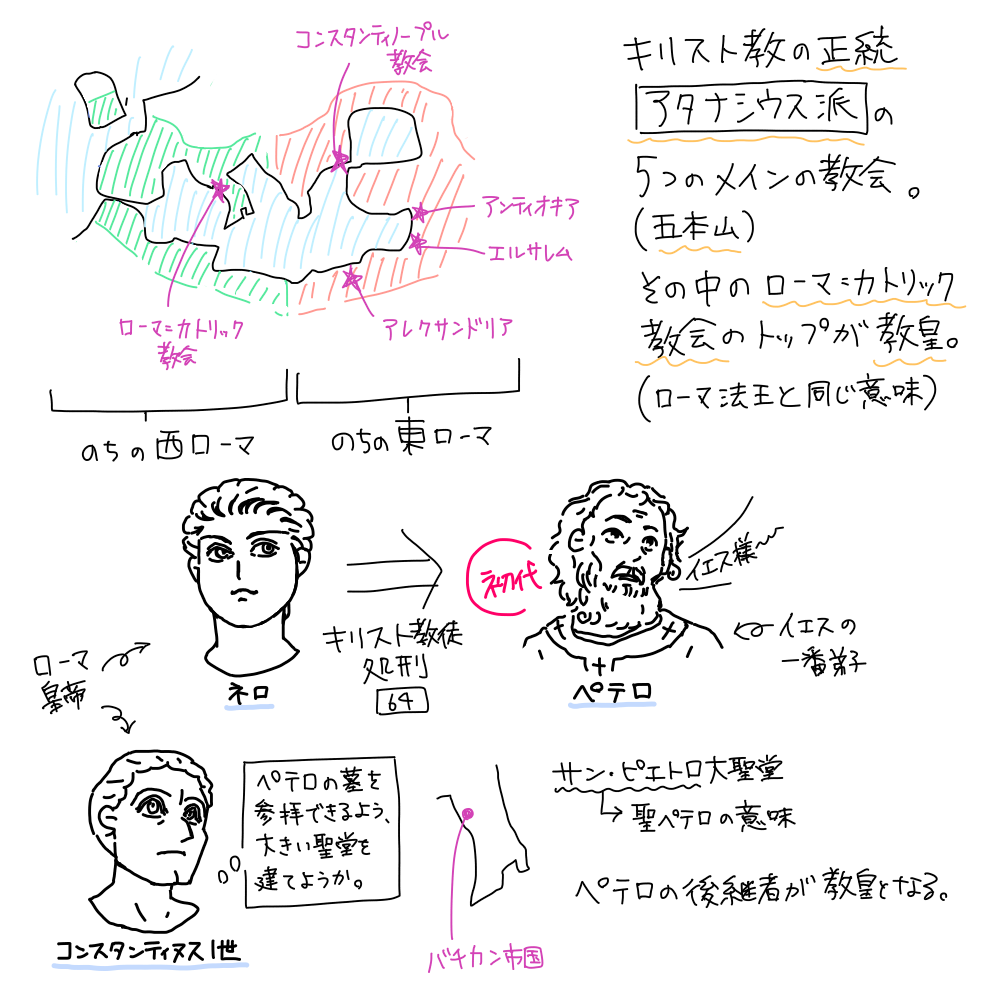 コンスタンティノープル
教会
アンティオキア
エルサレム
アレクサンドリア
ローマ=カトリック
教会
のちの西ローマ
のちの東ローマ
キリスト教の正統
アタナシウス派の
5つのメインの教会。
(五本山)
その中のローマ=カトリック
教会のトップが教皇。
(ローマ法王と同じ意味)
ローマ
皇帝
ネロ
キリスト教徒
処刑
64
初代
イエス様〜
イエスの
一番弟子
ペテロ
コンスタンティヌス1世
ペテロの墓を
参拝できるよう、
大きい聖堂を
建てようか。
バチカン市国
サン・ピエトロ大聖堂
→聖ペテロの意味
ペテロの後継者が教皇となる。